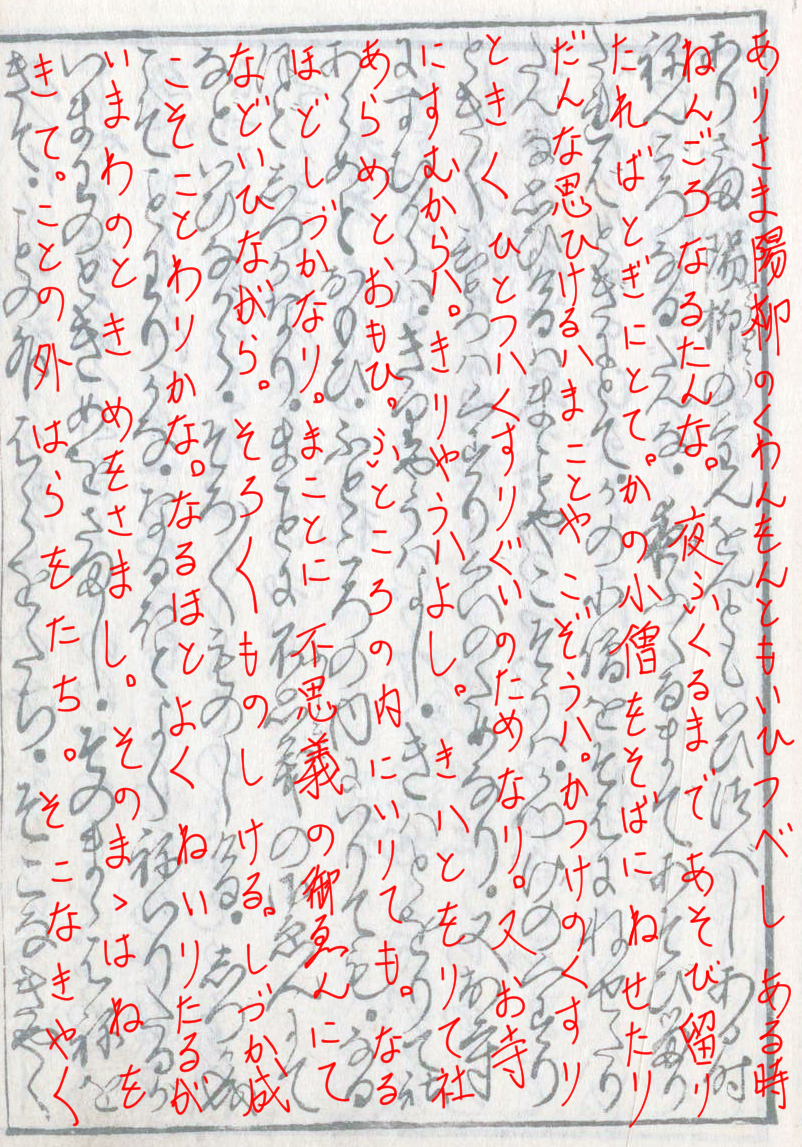 ありさま陽柳のくわんをんともいひつべし ある時
ねんごろなるたんな。夜ふくるまであそび留り
たればとぎにとて。かの小僧をそばにねせたり
だんな思ひけるハまことや こぞうハ。かつけのくすり
ときく ひとつハくすりぐいのためなり。又お寺
にすむからハ。きりやうハよし。きハとをりて社
あらめとおもひ。ふところの内にいりても。なる
ほどしづかなり。まことに 不思義の御ゑんにて
などいひながら。そろ〱ものしける。しづか成
こそことわりかな。なるほとよく ねいりたるが
いまわのとき めをさまし。そのまゝはねを
きて。ことの外はらをたち。そこなきやく